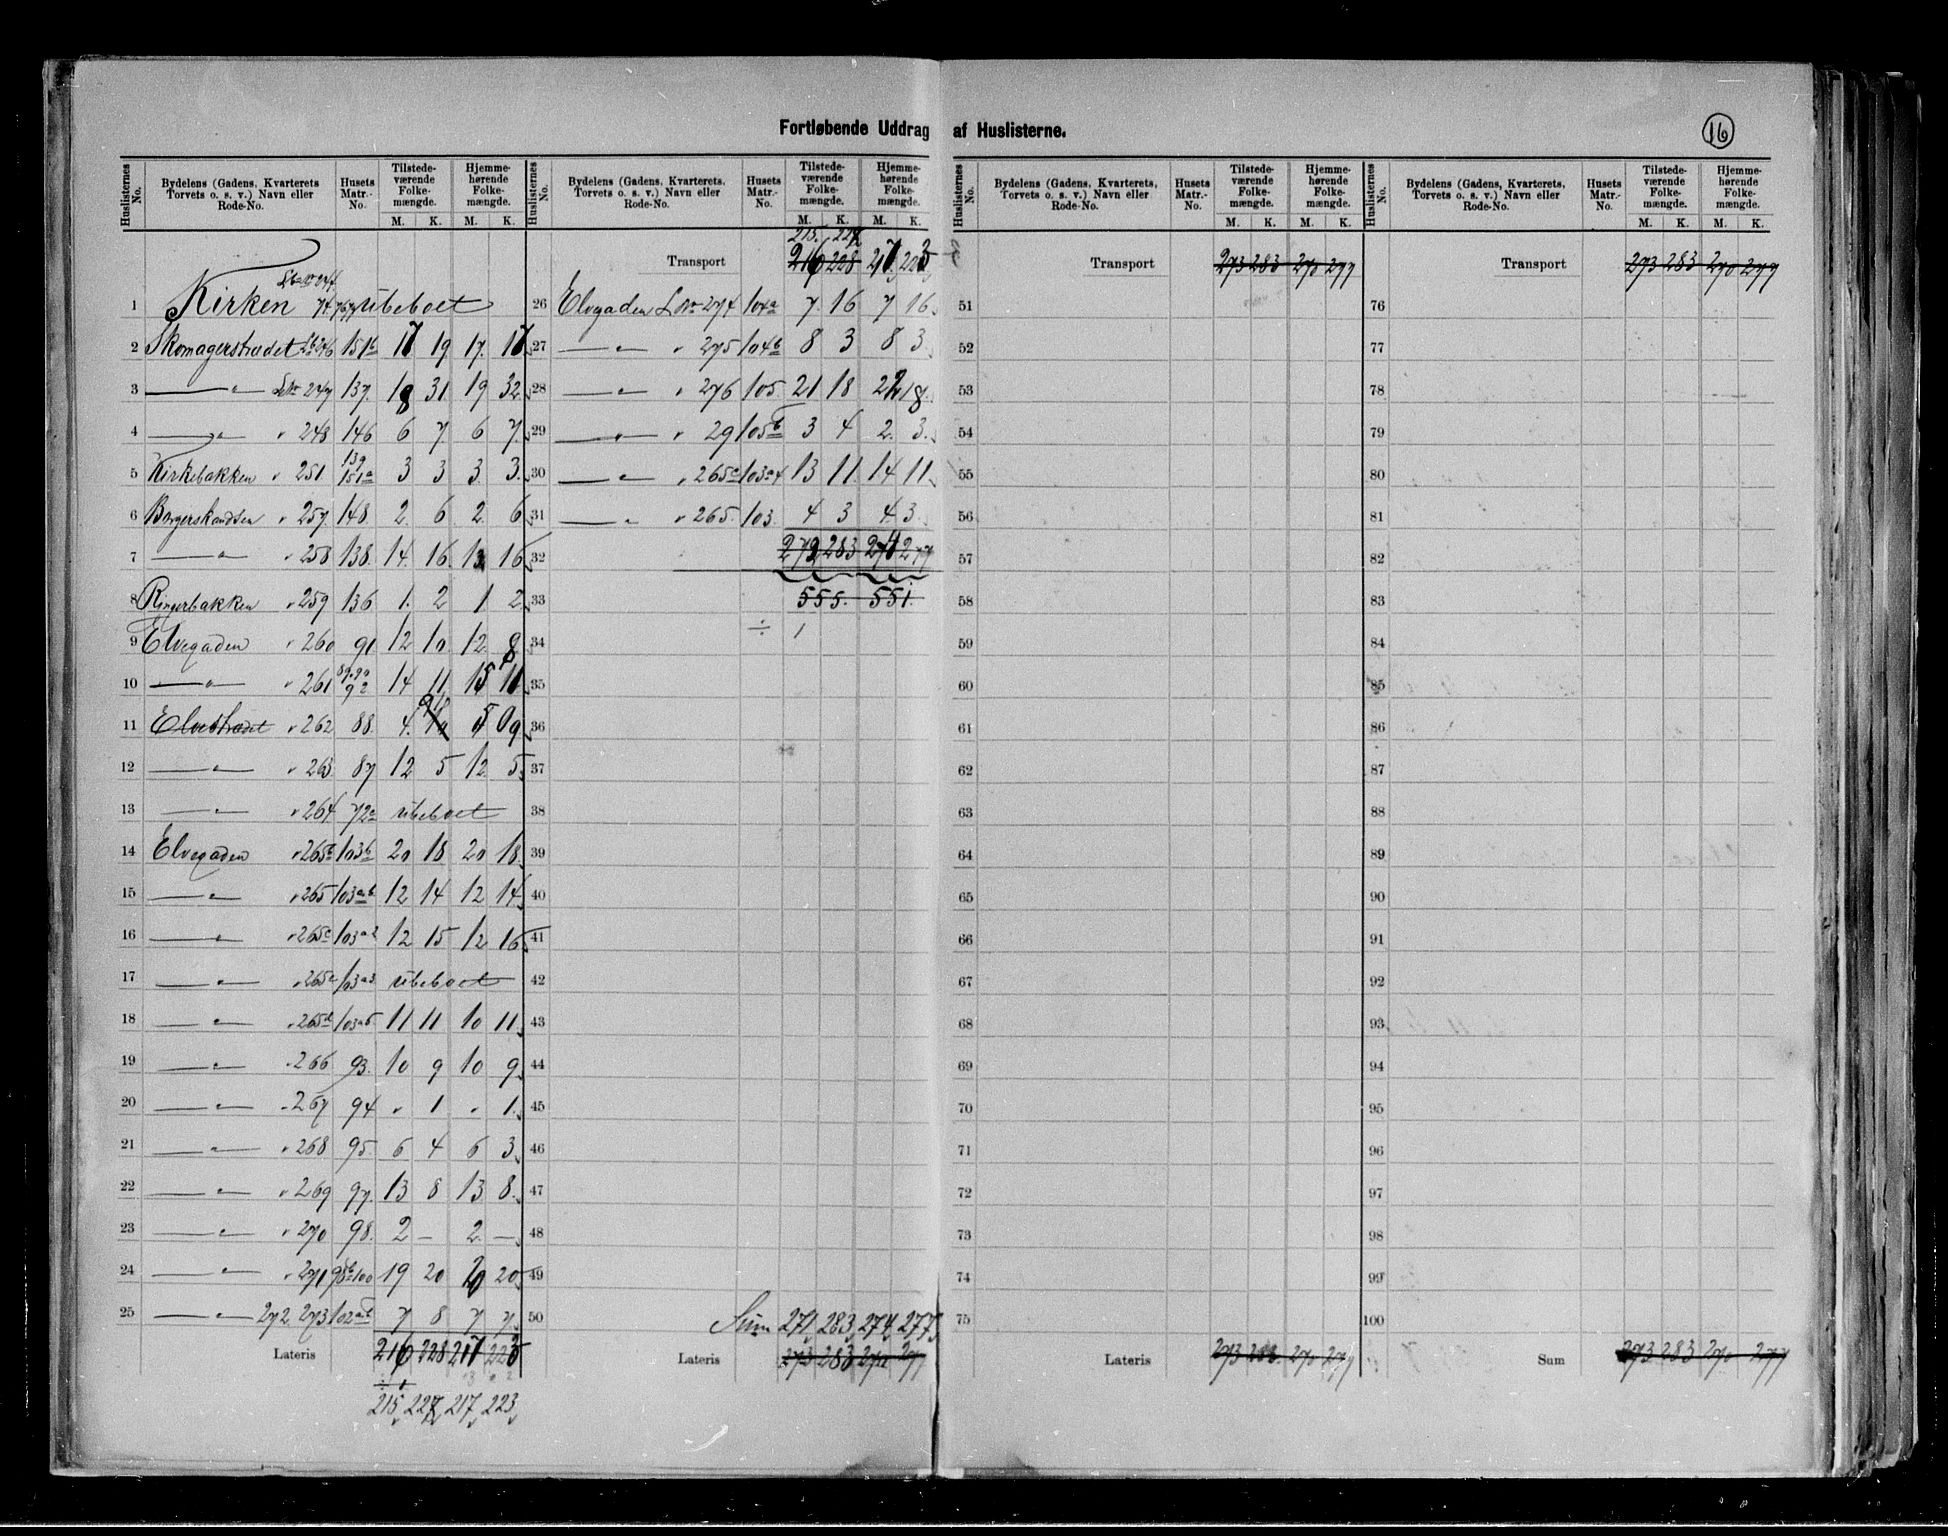 Fortløbende Uddrag af Huslisterne.
16
Huslisternes No. | Bydelens (Gadens, Kvarterets Torvets o. s. v.) Navn eller Rode-No. | Husets Matr.-No. | Tilstedeværende Folkemængde. M. K. | Hjemmehørende Folkemængde. M. K.
1 Kirken ubeboet
2 Skomagerstrædet 246 151b 17 19 17 17
3 — " — LNo 247 137. 18 31 19 32
4 — " — " 248 146 6 7 6 7
5 Kirkebakken " 251 139 151a 3 3 3 3
6 " 257 148 2 6 2 6
7 — " — " 258 138 14 16 13 16
8 " 259 136 1 2 1 2
9 Elvegaden " 260 91 12 10 12 8
10 — " — " 261 89.90 92 14 11 15 11
11 Elvestrædet " 262 88 4 9 5 9
12 — " — " 263 87 12 5 12 5
13 — " — " 264 72a ubeboet
14 Elvegaden " 265b 103b 20 18 20 18
15 — " — " 265 103ab 12 14 12 14
16 — " — " 265c 103a2 12 15 12 16
17 — " — " 265 103a3 ubeboet
18 — " — " 265d 103a5 11 11 10 11
19 — " — " 266 93. 10 9 10 9
20 — " — " 267 94 " 1 " 1
21 — " — " 268 95 6 4 6 3
22 — " — " 269 97. 13 8 13 8
23 — " — " 270 98. 2 — 2 —
24 — " — " 271 98b100 19 20 20 20
25 — " — 272. 273 102ab 7 8 7 7
Lateris 216 228 217 223
÷ 1
215 227 217 223
Huslisternes No. | Bydelens (Gadens, Kvarterets, Torvets o. s. v.) Navn eller Rode-No. | Husets Matr.-No. | Tilstedeværende Folkemængde. M. K. | Hjemmehørende Folkemængde. M. K.
215. 227
Transport 216 228 217 223
26 Elvegaden LNo 274 104a 7 16 7 16
27 — " — " 275 104b 8 3 8 3
28 — " — " 276 105 21 18 22 18
29 — " — " 29 105b 3 4 2 3
30 — " — " 265a 103a4 13 11 14 11
31 — " — " 265 103 4 3 4 3
32 272 283 274 277
33 555. 551.
34 ÷ 1
35
36
37
38
39
40
41
42
43
44
45
46
47
48
49
50 Sum 271 283 274 277
Lateris 273 283 270 277
Huslisternes No. | Bydelens (Gadens, Kvarterets, Torvets o. s. v.) Navn eller Rode-No. | Husets Matr.-No. | Tilstedeværende Folkemængde. M. K. | Hjemmehørende Folkemængde. M. K.
Transport 273 283 270 277
51
52
53
54
55
56
57
58
59
60
61
62
63
64
65
66
67
68
69
70
71
72
73
74
75
Lateris 273 283 270 277
Huslisternes No. | Bydelens (Gadens, Kvarterets, Torvets o. s. v.) Navn eller Rode-No. | Husets Matr.-No. | Tilstedeværende Folkemængde. M. K. | Hjemmehørende Folkemængde. M. K.
Transport 273 283 270 277
76
77
78
79
80
81
82
83
84
85
86
87
88
89
90
91
92
93
94
95
96
97
98
99
100
Sum 273 283 270 277